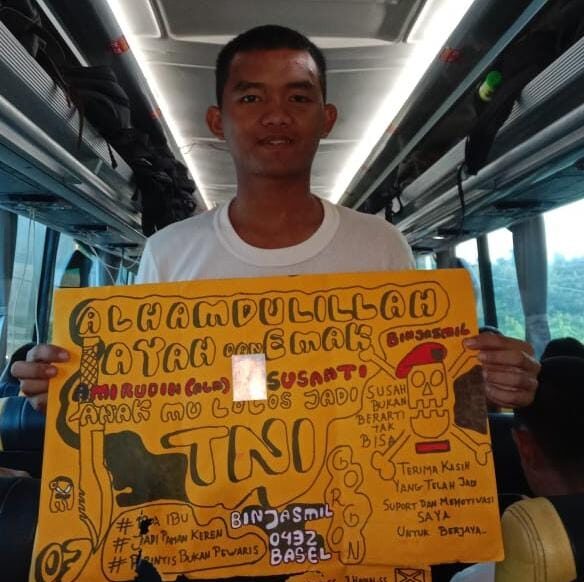 ALHAMDULILLAH
AYAH DAN EMAK
BINJASMIL
AMIRUDIN (ALM) SUSANTI
ANAK MU LULOS JADI
TNI
SUSAH
BUKAN
BERARTI
TAK
BISA
TERIMA KASIH
YANG TELAH JADI
SUPORT DAN MEMOTIVASI
SAYA
UNTUK BERJAYA..
# IBU
# JADI PAMAN KEREN
# PERINTIS BUKAN PEWARIS
BINJASMIL
0432
BASEL